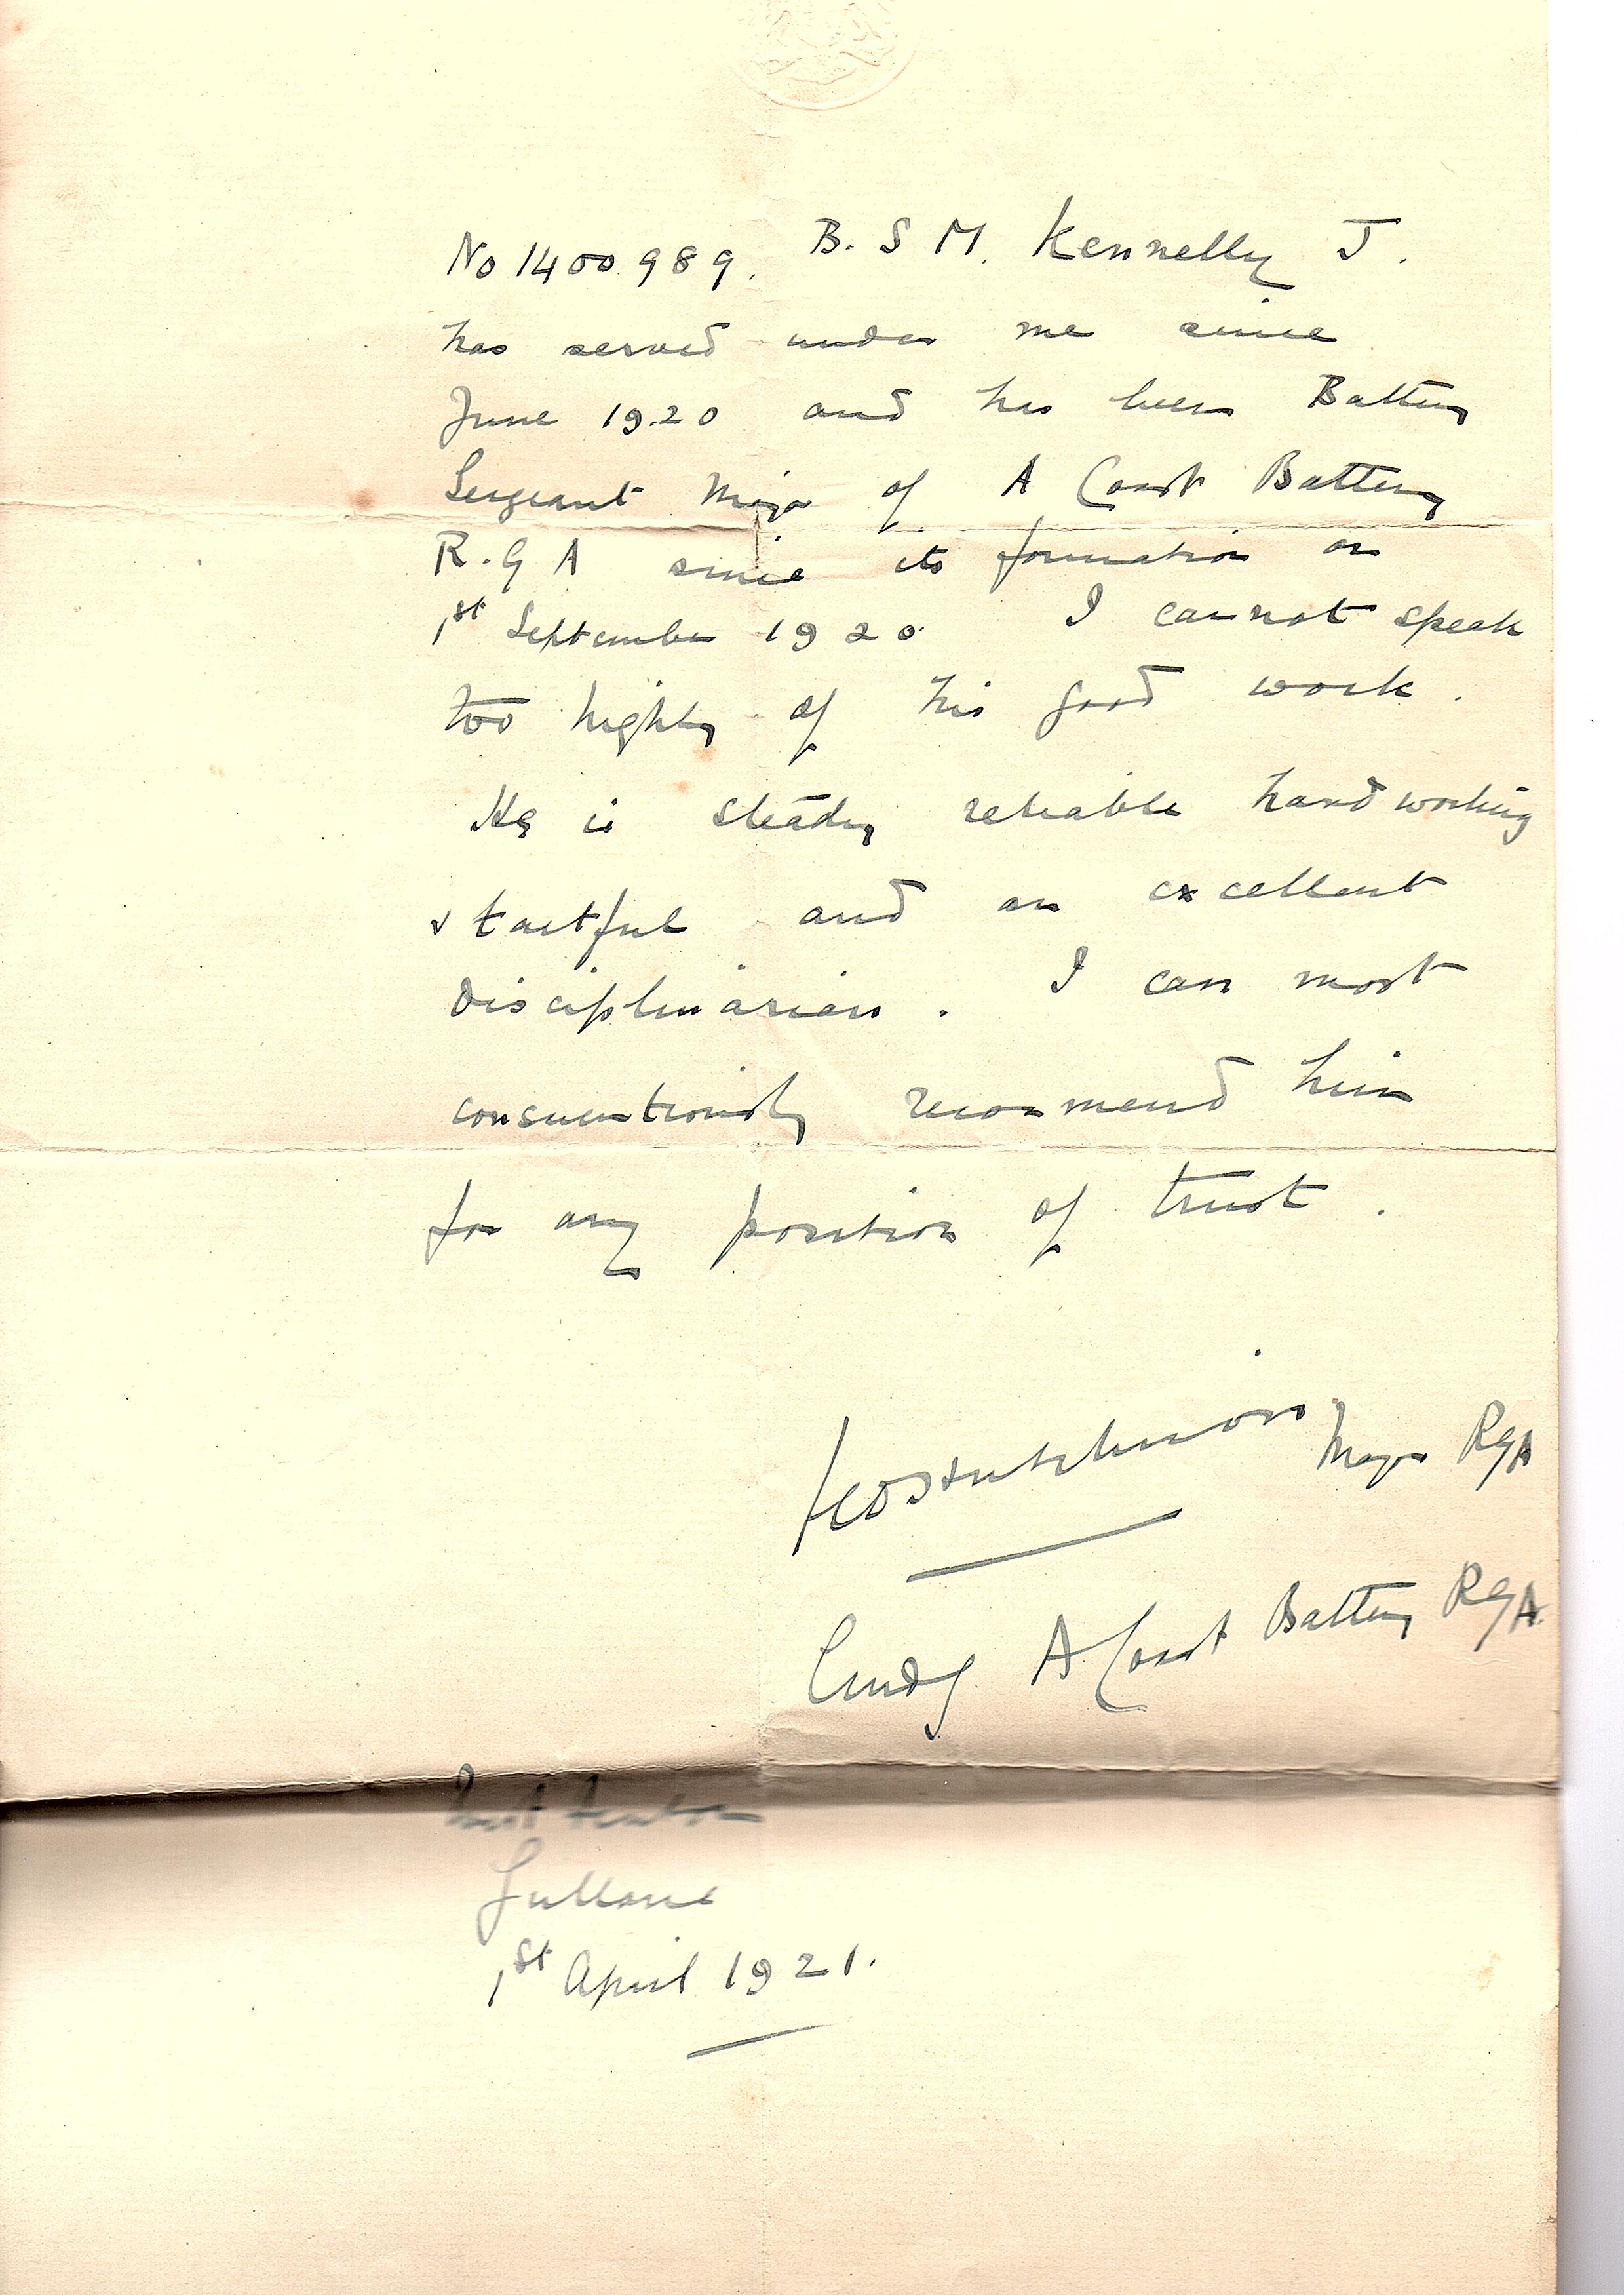 No 1400989. B. S M. Kennelly J.
has served under me since
June 1920 and has been Battery
Sergeant Major of A Coast Battery
R. G A since its formation on
1st September 1920. I cannot speak
too highly of his good work.
He is steady reliable hardworking
& tactful and an excellent
disciplinarian. I can most
conscientiously recommend him
for any position of trust.
Major RGA
Cmdg A Coast Battery RGA.
Gullane
1st April 1921.